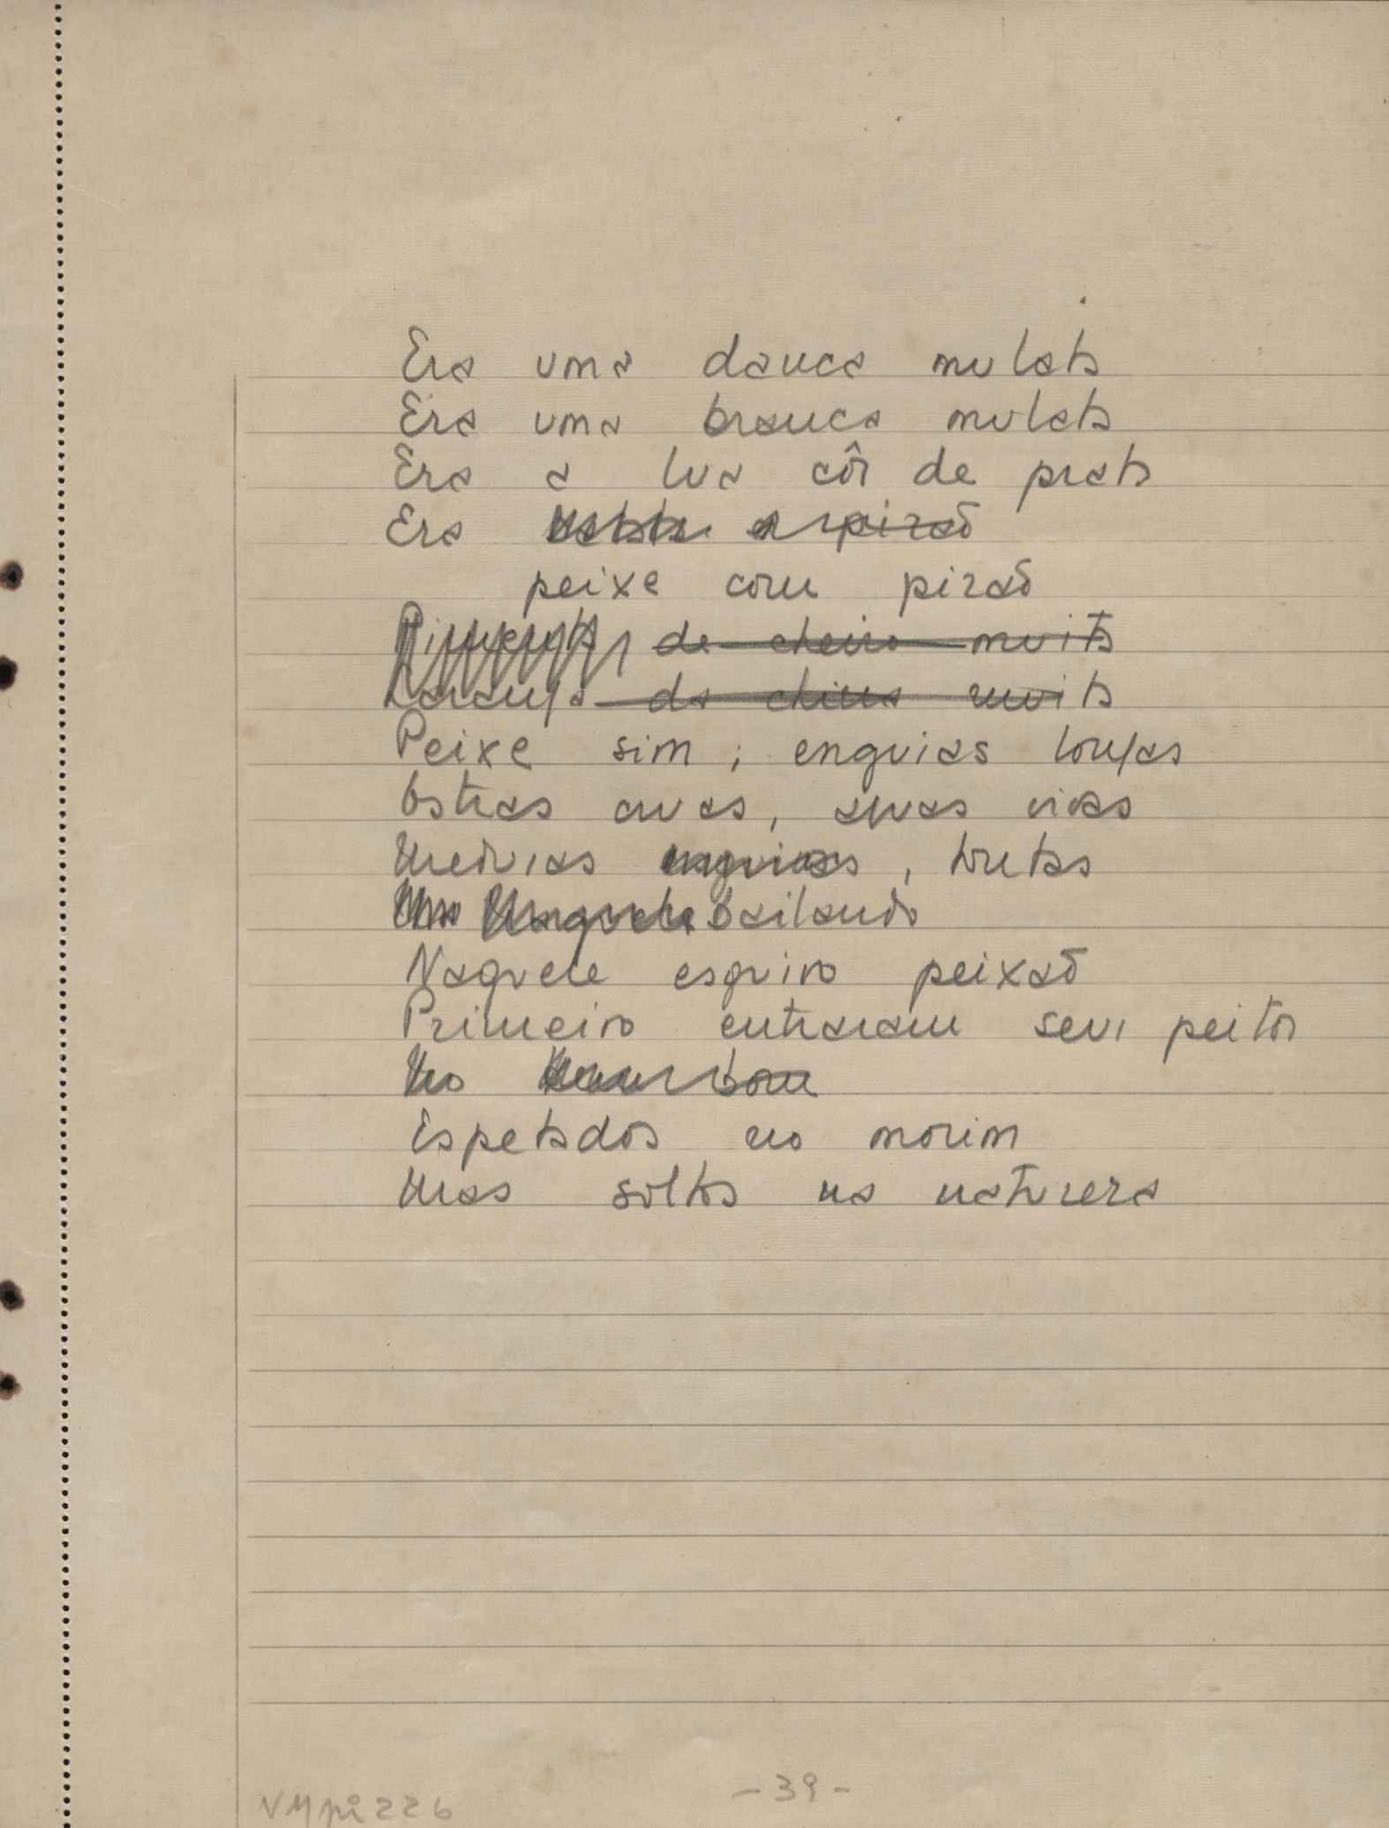 Era uma dança mulata
Era uma branca mulata
Era a lua côr de prata
Era
peixe com pirão
Pimenta de cheiro muita
Laranja da china muita
Peixe sim; enguias longas
Ostras cruas, aruás vivas
Meduias enguias, trutas
bailando
Naquele esquivo peixão
Primeiro entraram seus peitos
No bom
Espetados no morim
Mas soltos na natureza
- 39 -
VMpi226